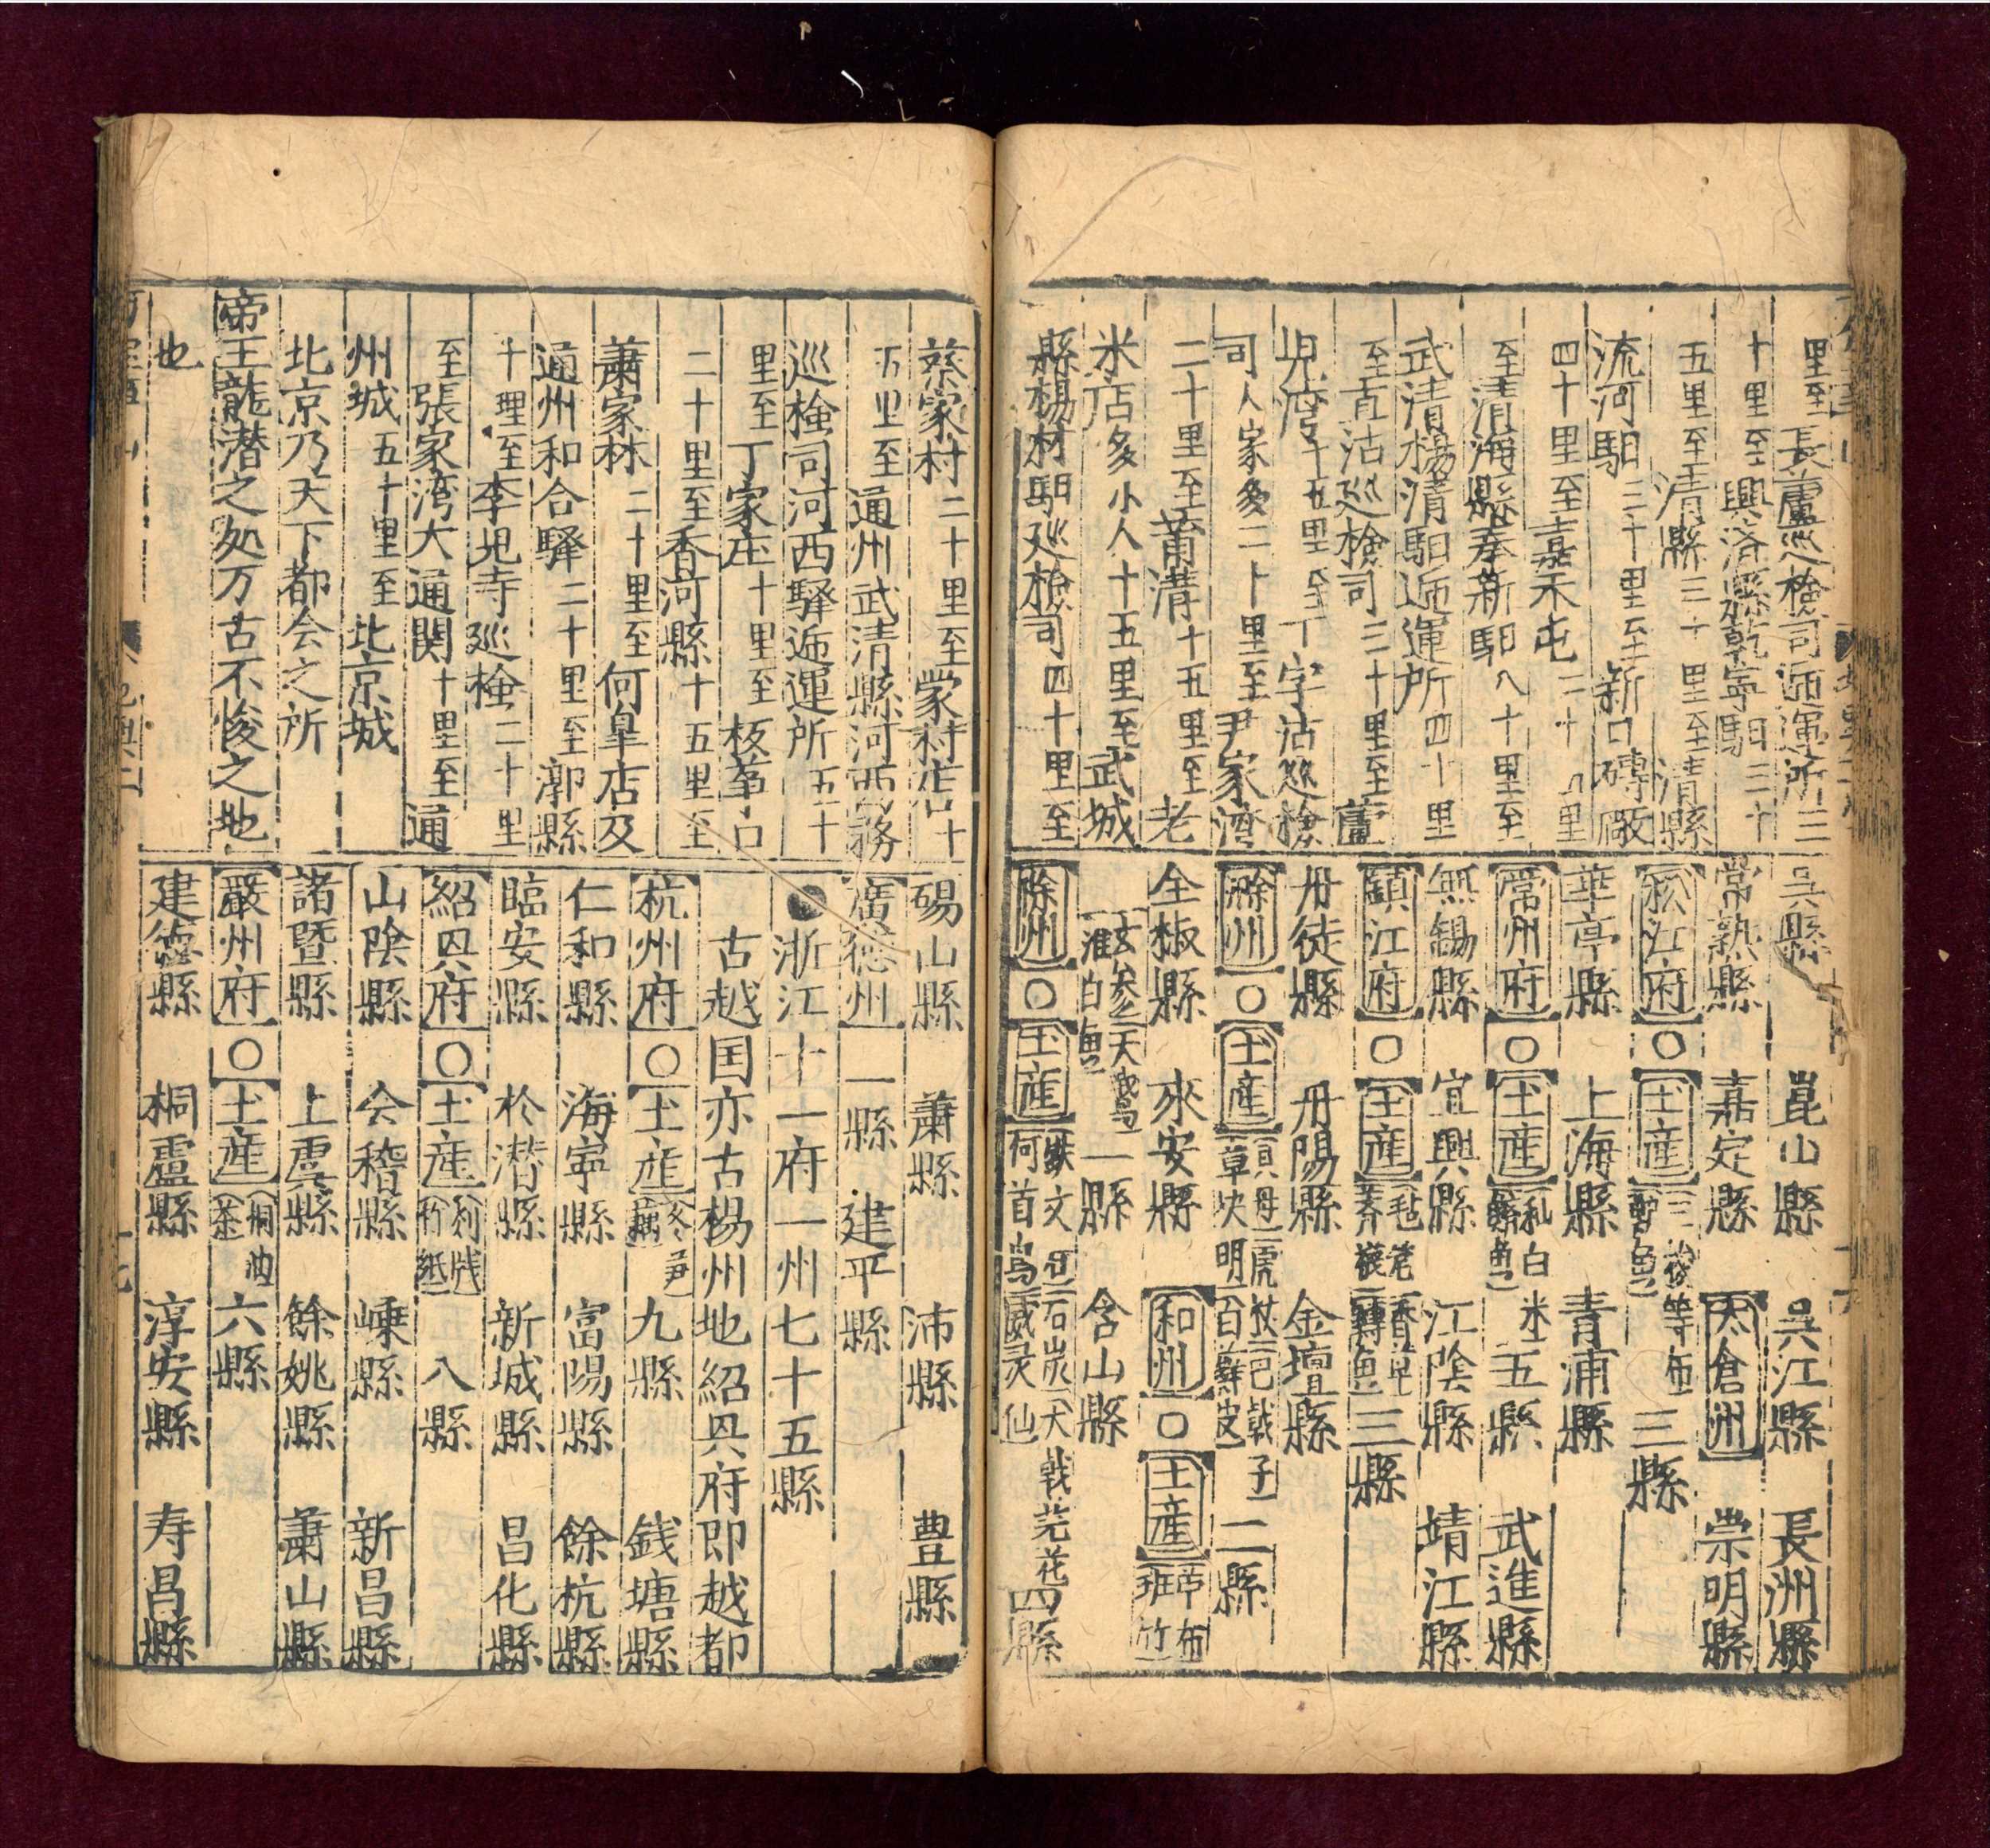 里至長蘆巡檢司逓運所三
十里至興済縣乾寧馹三十
五里至清縣三十里至清縣
流河馹三十里至新口磚廠
四十里至嘉禾屯二十八里
至清海縣奉新馹八十里至
武清楊清馹逓運所四十里
至直沽巡檢司三十里至蘆
児湾十五里至丁字沽巡檢
司人家多二十里至尹家湾
二十里至莆溝十五里至老
米店多小人十五里至武城
縣楊村馹巡檢司四十里至
吳縣 崑山縣 吳江縣 長洲縣
常熟縣 嘉定縣 太倉洲 崇明縣
松江府○土産三梭等布三縣
華亭縣 上海縣 青浦縣
常州府○土産五縣 武進縣
無錫縣 宜興縣 江陰縣 靖江縣
鎮江府○土産三縣
丹徒縣 丹陽縣 金壇縣
滁州○土産貝母虎杖巴戟子草决明百蘚皮二縣
全椒縣 來安縣 和州○土産帘布班竹
玄參天鵞淮白魚一縣 含山縣
徐州○土産何首烏石炭大戟芫花威灵仙四縣
蔡家村二十里至蒙村店十
五里至通州武清縣河西務
巡檢司河西驛逓運所五十
里至丁家庄十里至板䈎口
二十里至香河縣十五里至
蕭家林二十里至何皐店及
通州和合驛二十里至漷縣
十理至李児寺巡檢二十里
至張家湾大通関十里至通
州城五十里至北京城
北京乃天下都会之所
帝王龍潜之処万古不悛之地
也
碭山縣 蕭縣 沛縣 豊縣
廣德州 一縣 建平縣
●浙江十一府一州七十五縣
古越国亦古楊州地紹興府即越都
杭州府○土産九縣 銭塘縣
仁和縣 海寧縣 富陽縣 餘杭縣
臨安縣 於潜縣 新城縣 昌化縣
紹興府○土産八縣
山陰縣 会稽縣 嵊縣 新昌縣
諸暨縣 上虞縣 餘姚縣 蕭山縣
嚴州府○土産桐油茶六縣
建德縣 桐廬縣 淳安縣 寿昌縣